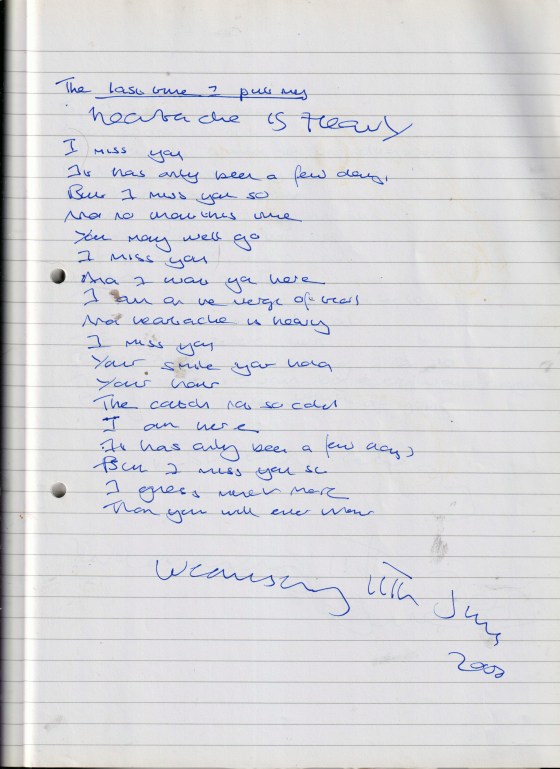 The last time I
heartache is Heavy
I miss you
It has only been a few days,
But I miss you so
And no matter time
You may well go
I miss you
And I want ya here
I am on the verge of tears
And heartache is heavy
I miss you
Your smile your hand
Your hair
The couch so cold
I am here
It has only been a few days
But I miss you so
I guess never more
Than you will ever know
Wednesday 11th June
2003